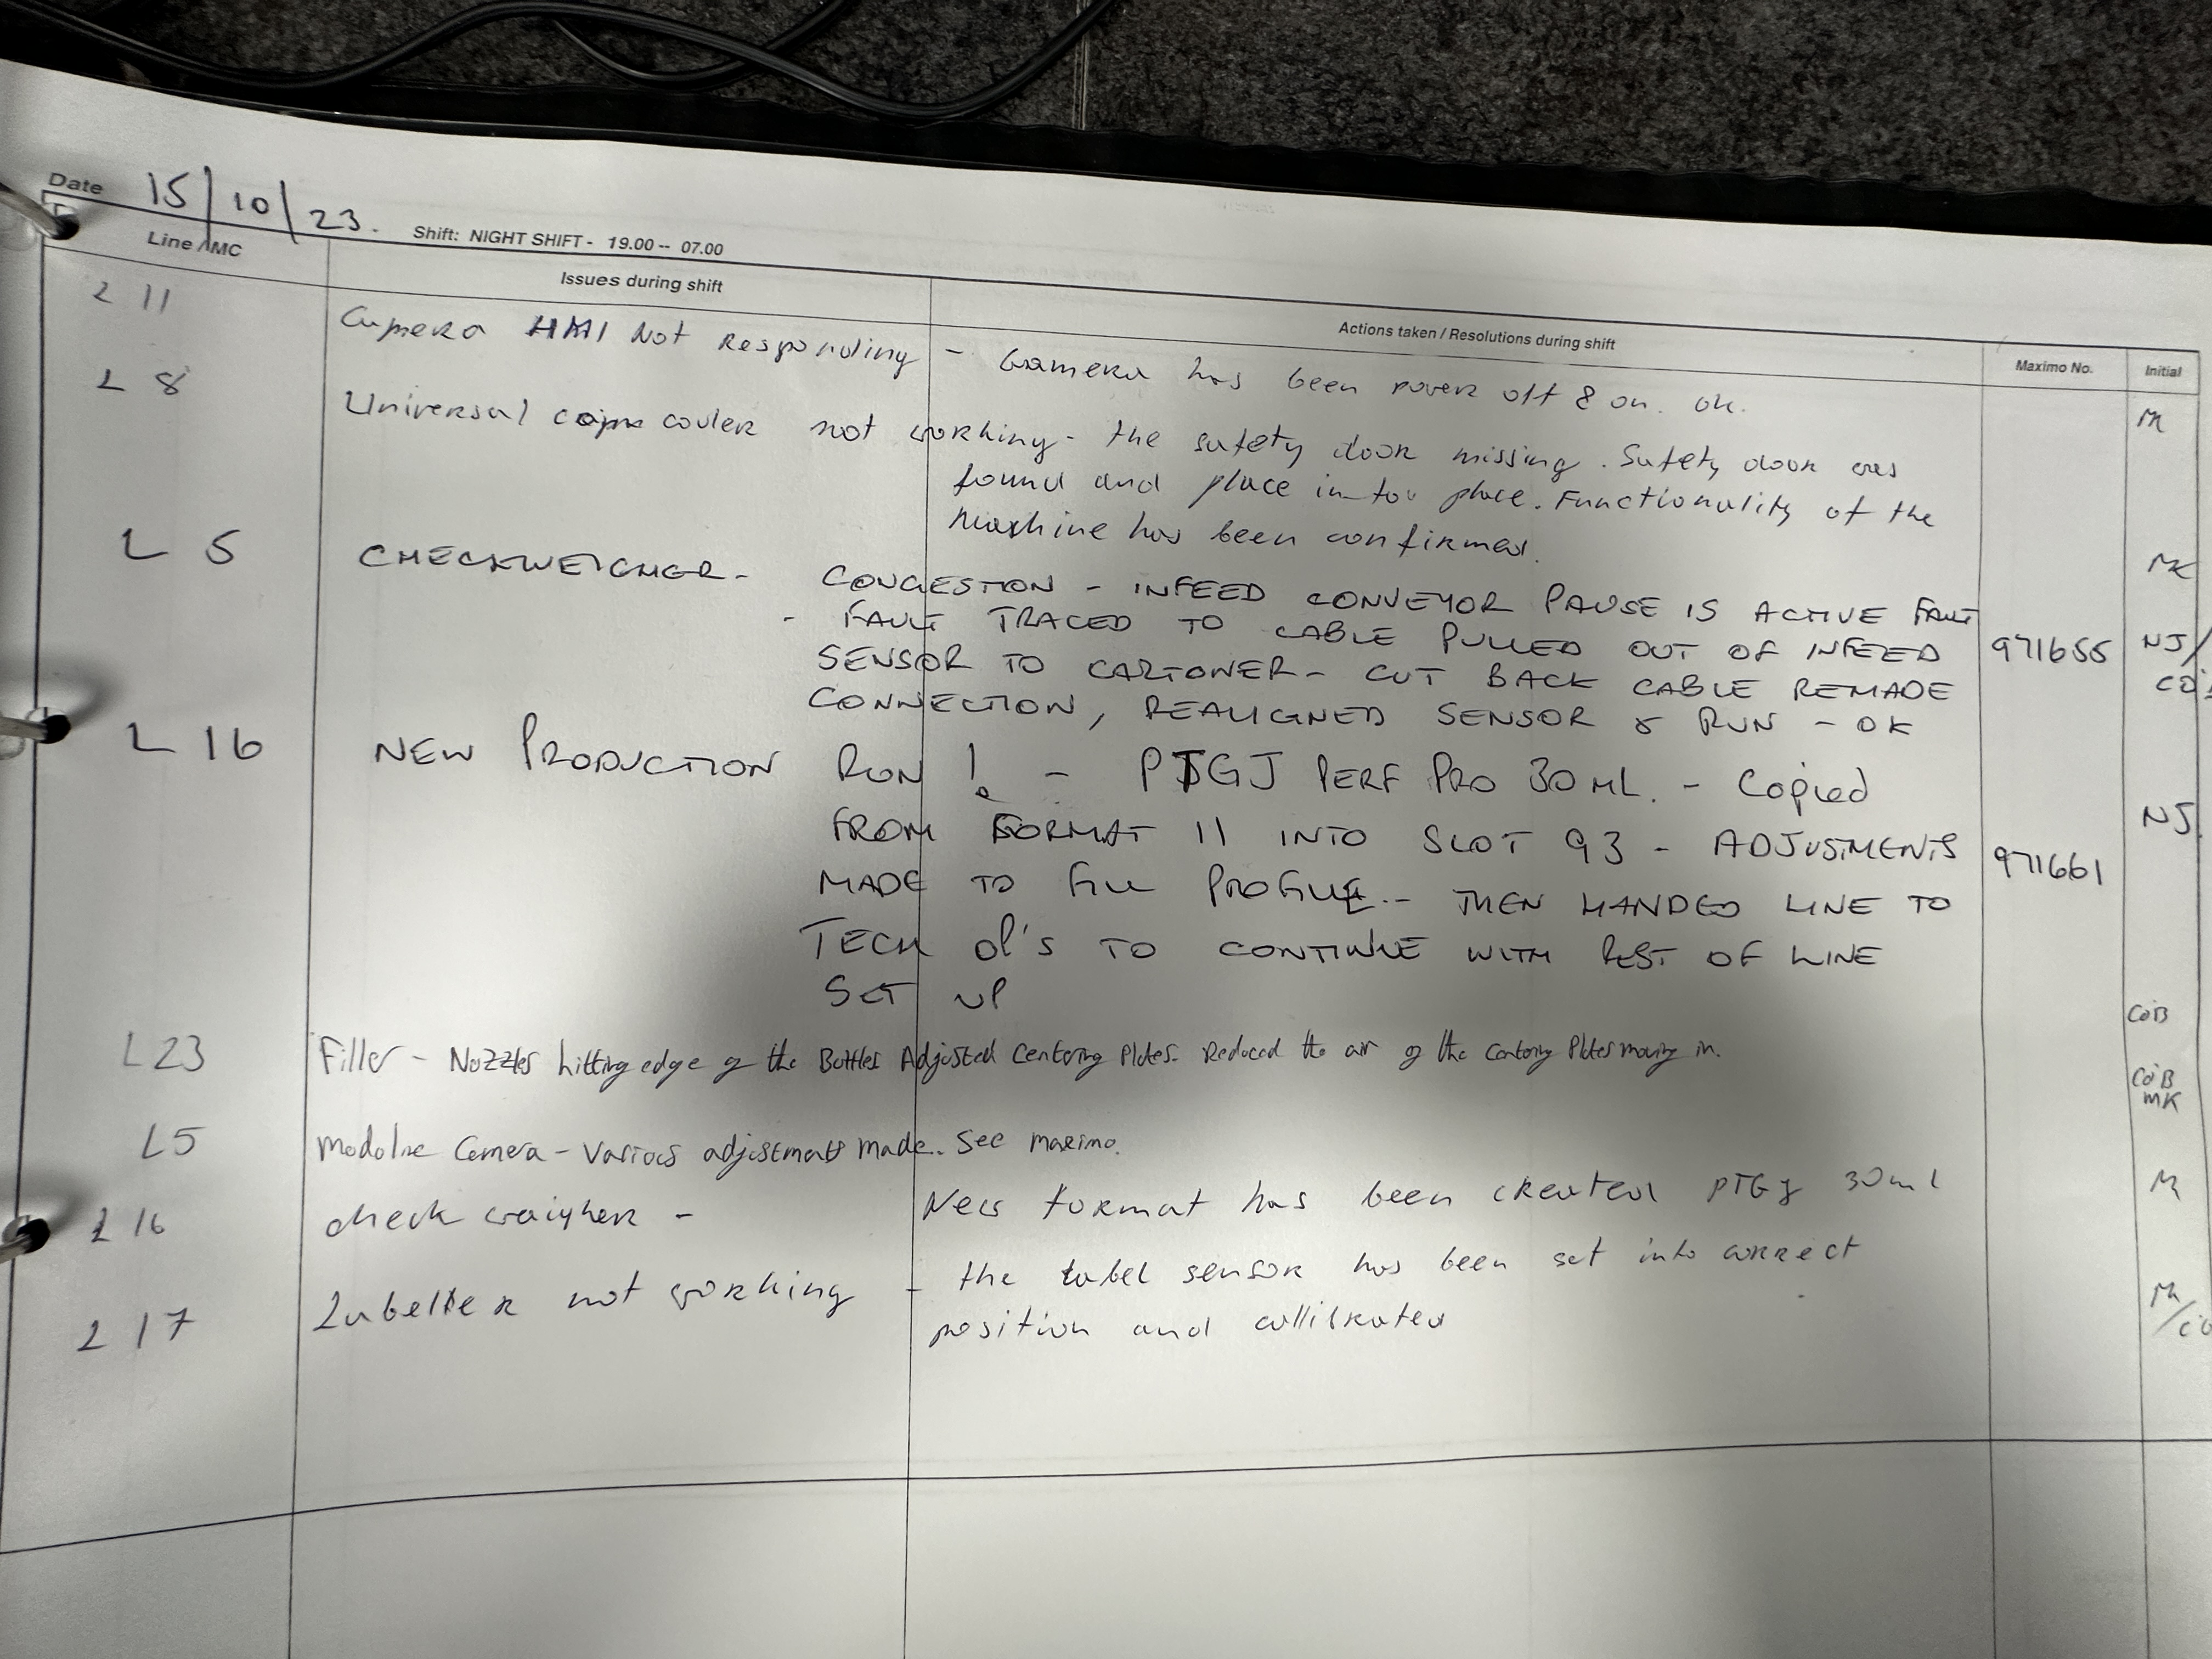 Date 15/10/23. Shift: NIGHT SHIFT - 19.00 -- 07.00
Line / MC Issues during shift Actions taken / Resolutions during shift Maximo No. Initial
L 11 Camera HMI Not Responding - Camera has been power off & on. ok.
L 8 Universal cooler not working - the safety door missing. Safety door was
found and place in place. Functionality of the
Machine has been confirmed. MK
L 5 CHECKWEIGHER - CONGESTION - INFEED CONVEYOR PAUSE IS ACTIVE FAULT
- FAULT TRACED TO CABLE PULLED OUT OF INFEED 971655 NJ/
SENSOR TO CARTONER - CUT BACK CABLE REMADE
CONNECTION, REALIGNED SENSOR & RUN - OK
L 16 NEW PRODUCTION RUN! - PTGJ PERF PRO 30ML. - Copied
FROM FORMAT 11 INTO SLOT 93 - ADJUSTMENTS NJ.
MADE TO FILL PROFILE - THEN HANDED LINE TO 971661
TECH OP'S TO CONTINUE WITH REST OF LINE
SET UP
L23 Filler - Nozzles hitting edge of the Bottles Adjusted Centering Plates. Reduced the air of the Centering Plates moving in. COB
L5 Camera - Various adjustments made. See maximo. COB
MK
L 16 check weigher - New format has been created PTGJ 30ml
L 17 Labeller not working - the label sensor has been set into correct
position and callibrated